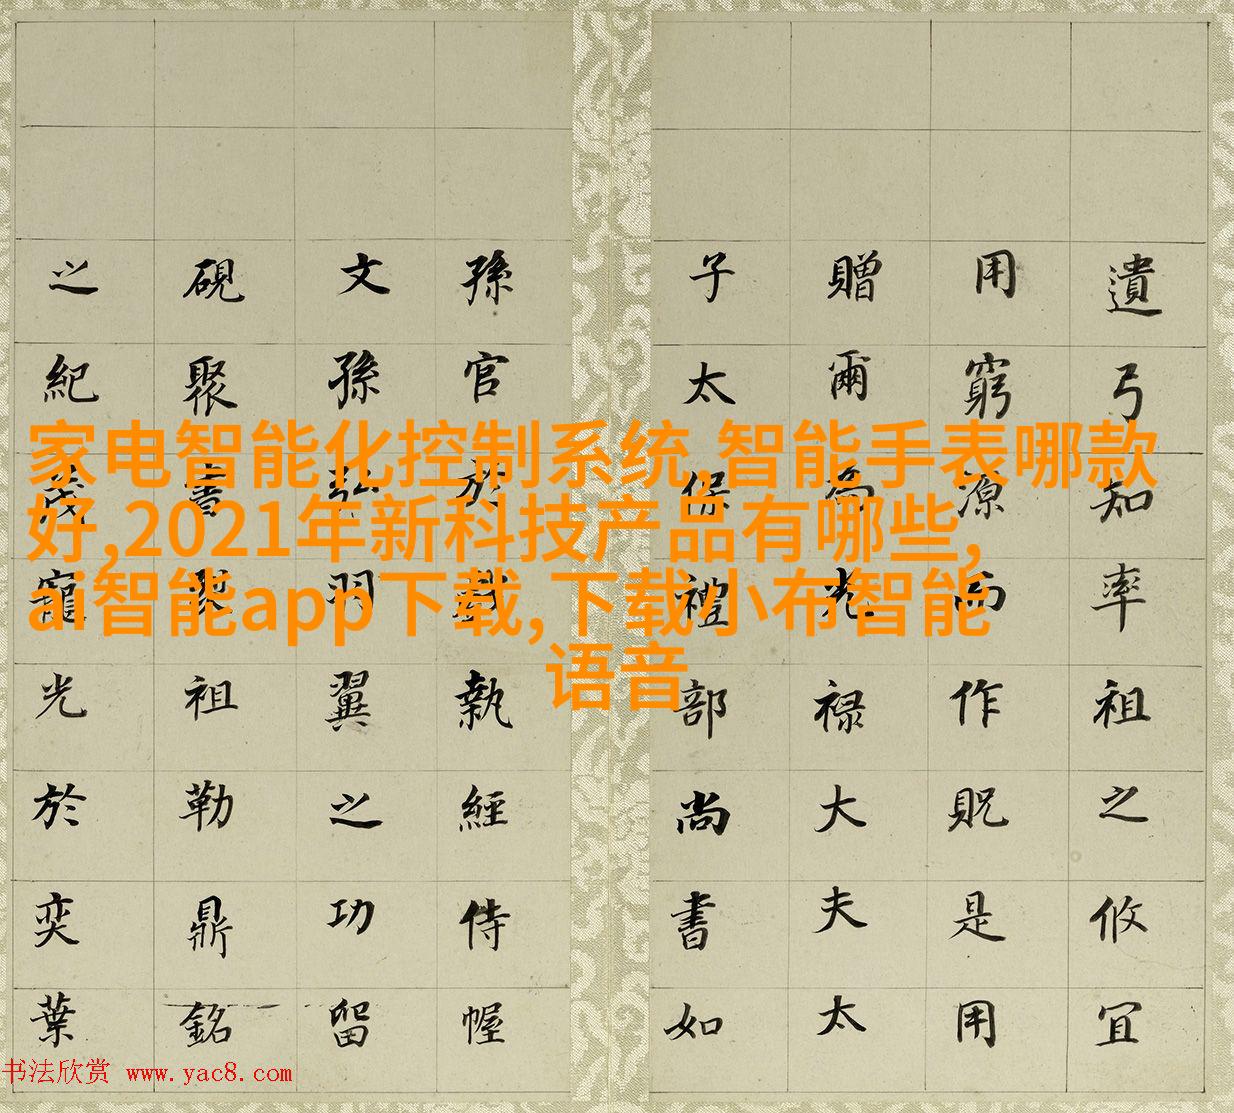 遺弓知率祖之攸宜
用窮源而作貺是用
贈爾為光禄大夫太
子太保禮部尚書如
孫官於執經侍幄
文孫弘羽翼之功留
硯聚書祖勒鼎銘
之紀茂寵光於奕葉
家电智能化控制系统,智能手表哪款
好,2021年新科技产品有哪些,
ai智能app下载,下载小布智能
语音
书法欣赏 www.yac8.com